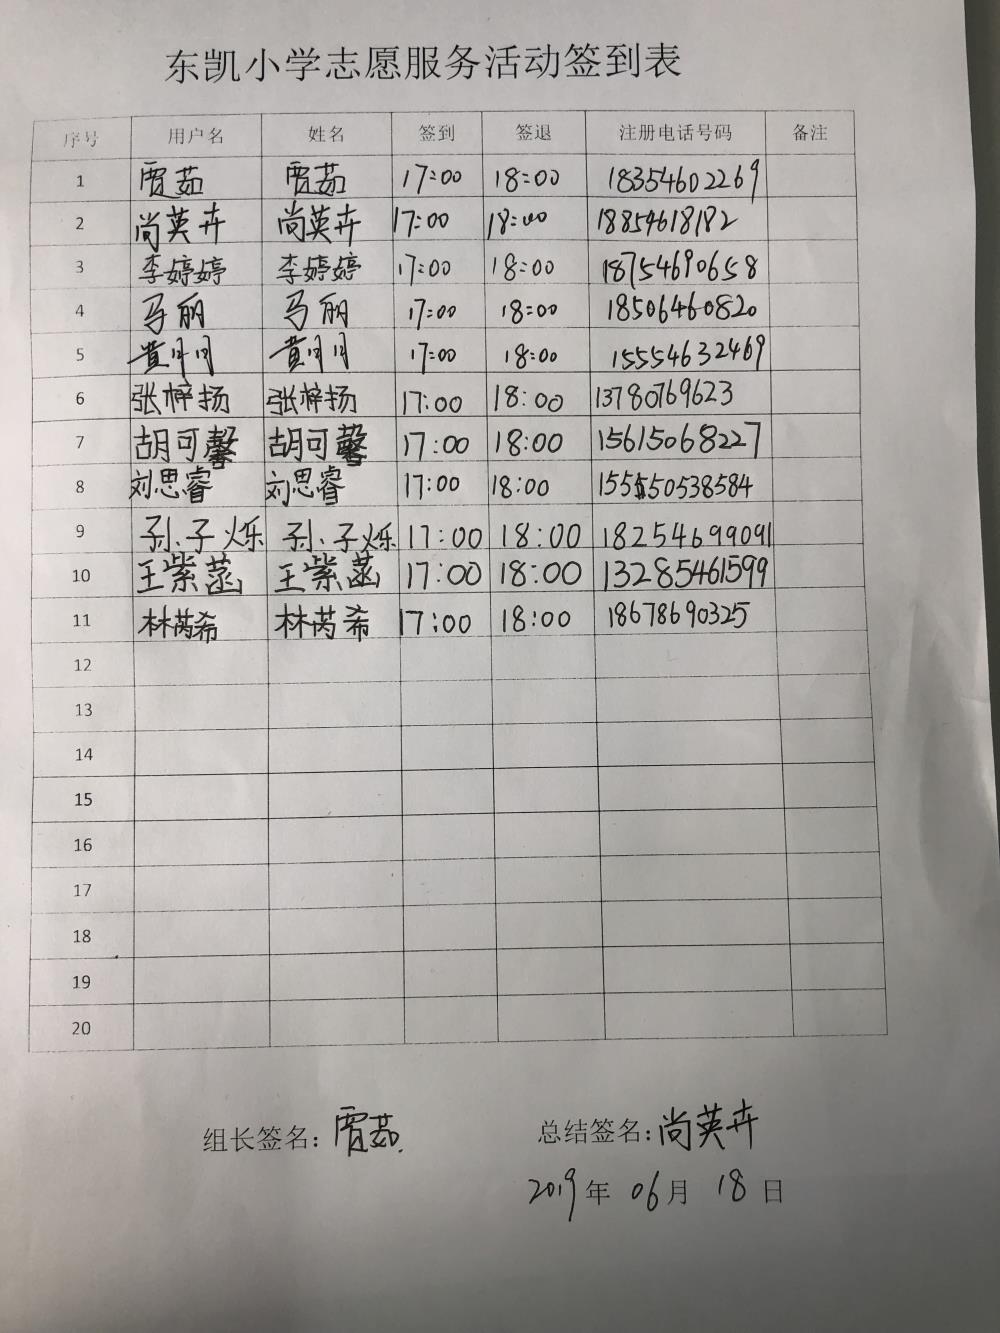 东凯小学志愿服务活动签到表
序号 用户名 姓名 签到 签退 注册电话号码 备注
1 贾茹 贾茹 17:00 18:00 18354602269
2 尚英卉 尚英卉 17:00 18:00 18854618182
3 李婷婷 李婷婷 17:00 18:00 18754690658
4 马丽 马丽 17:00 18:00 18506460820
5 黄月月 黄月月 17:00 18:00 15554632469
6 张梓扬 张梓扬 17:00 18:00 13780769623
7 胡可馨 胡可馨 17:00 18:00 15615068227
8 刘思睿 刘思睿 17:00 18:00
9 孙子烁 孙子烁 17:00 18:00 18254699091
10 王紫菡 王紫菡 17:00 18:00 13285461599
11 林芮希 林芮希 17:00 18:00 18678690325
12
13
14
15
16
17
18
19
20
组长签名：贾茹 总结签名：尚英卉
2019年 06月 18日